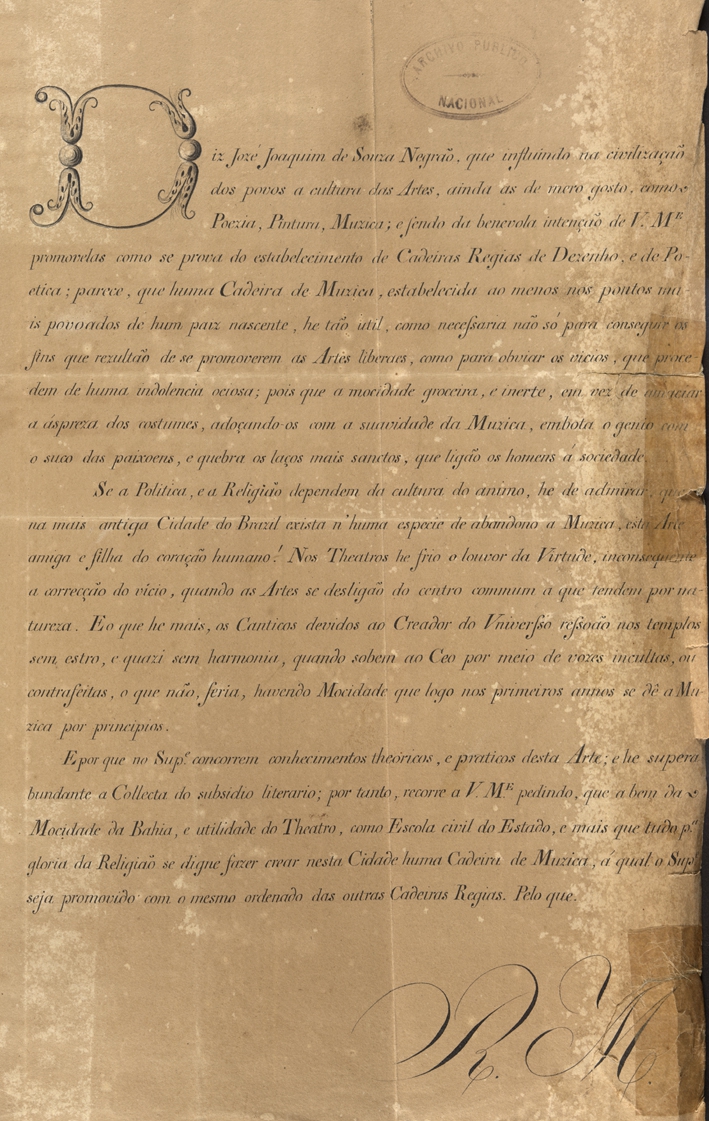 ARCHIVO PUBLICO
NACIONAL
Diz Jozé Joaquim de Souza Negrão, que influindo na civilização
dos povos a cultura das Artes, ainda as de mero gosto, como
Poezia, Pintura, Muzica; e sendo da benevola intenção de V. M.ᴱ
promovelas como se prova do estabelecimento de Cadeiras Regias de Dezenho, e de Po-
etica; parece, que huma Cadeira de Muzica, estabelecida ao menos nos pontos ma-
is povoados de hum paiz nascente, he tão util, como necessaria não só para conseguir os
fins que rezultão de se promoverem as Artes liberaes, como para obviar os vicios, que proce-
dem de huma indolencia ociosa; pois que a mocidade groceira, e inerte, em vez de
a áspreza dos costumes, adoçando-os com a suavidade da Muzica, embota o genio com
o suco das paixoens, e quebra os laços mais sanctos, que ligão os homens á sociedade
Se a Politica, e a Religião dependem da cultura do animo, he de admirar, que
na mais antiga Cidade do Brazil exista n'huma especie de abandono a Muzica, esta Arte
amiga e filha do coração humano! Nos Theatros he frio o louvor da Virtude, inconsequente
a correcção do vicio, quando as Artes se desligão do centro commum a que tendem por na-
tureza. E o que he mais, os Canticos devidos ao Creador do Vniverso ressoão nos templos
sem estro, e quazi sem harmonia, quando sobem ao Ceo por meio de vozes incultas, ou
contrafeitas, o que não, seria, havendo Mocidade que logo nos primeiros annos se dê a Mu-
zica por principios.
E por que no Sup.ᵉ concorrem conhecimentos theóricos, e praticos desta Arte; e he supera
bundante a Collecta do subsidio literario; por tanto, recorre a V. M.ᴱ pedindo, que a bem da
Mocidade da Bahia, e utilidade do Theatro, como Escola civil do Estado, e mais que tudo p.ᵃ
gloria da Religião se digne fazer crear nesta Cidade huma Cadeira de Muzica, á qual o Sup.ᵉ
seja promovido com o mesmo ordenado das outras Cadeiras Regias. Pelo que.
R. M.